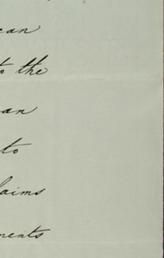 ean
to the
an
to
laims
ments